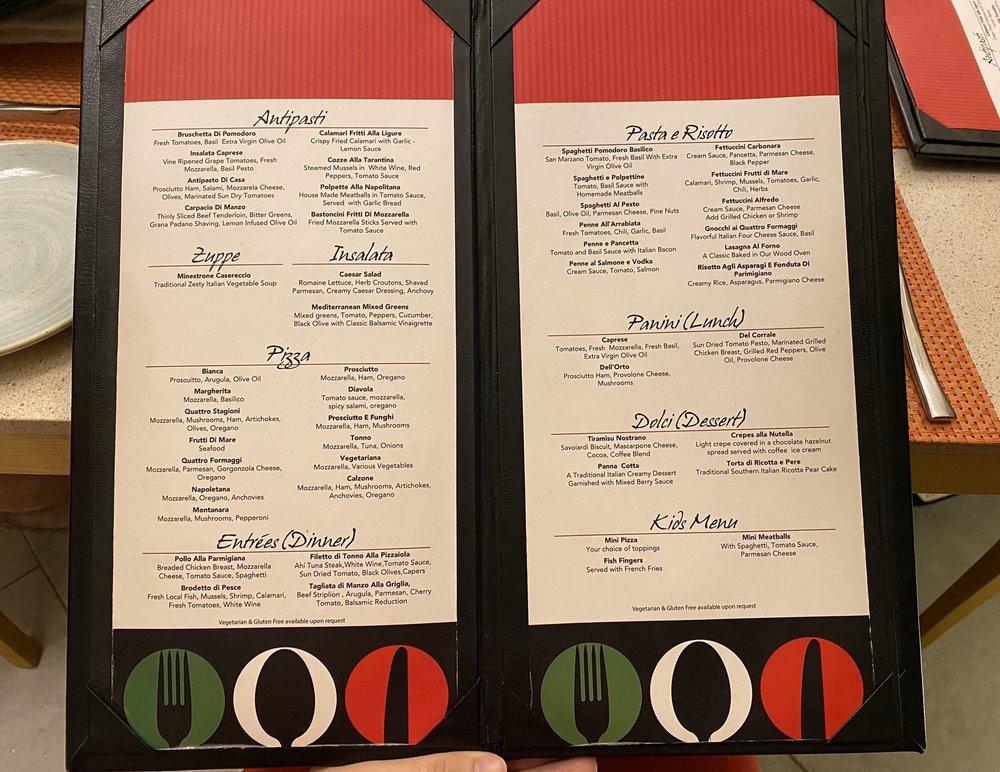 Antipasti
Bruschetta Di Pomodoro
Fresh Tomatoes, Basil Extra Virgin Olive Oil
Insalata Caprese
Vine Ripened Grape Tomatoes, Fresh
Mozzarella, Basil Pesto
Antipasto Di Casa
Prosciutto Ham, Salami, Mozzarela Cheese,
Olives, Marinated Sun Dry Tomatoes
Carpacio Di Manzo
Thinly Sliced Beef Tenderloin, Bitter Greens,
Grana Padano Shaving, Lemon Infused Olive Oil
Calamari Fritti Alla Ligure
Crispy Fried Calamari with Garlic -
Lemon Sauce
Cozze Alla Tarantina
Steamed Mussels in White Wine, Red
Peppers, Tomato Sauce
Polpette Alla Napolitana
House Made Meatballs in Tomato Sauce,
Served with Garlic Bread
Bastoncini Fritti Di Mozzarella
Fried Mozzarella Sticks Served with
Tomato Sauce
Zuppe
Minestrone Casereccio
Traditional Zesty Italian Vegetable Soup
Insalata
Caesar Salad
Romaine Lettuce, Herb Croutons, Shaved
Parmesan, Creamy Caesar Dressing, Anchovy
Mediterranean Mixed Greens
Mixed greens, Tomato, Peppers, Cucumber,
Black Olive with Classic Balsamic Vinaigrette
Pizza
Bianca
Proscuitto, Arugula, Olive Oil
Margherita
Mozzarella, Basilico
Quattro Stagioni
Mozzarella, Mushrooms, Ham, Artichokes,
Olives, Oregano
Frutti Di Mare
Seafood
Quattro Formaggi
Mozzarella, Parmesan, Gorgonzola Cheese,
Oregano
Napoletana
Mozzarella, Oregano, Anchovies
Montanara
Mozzarella, Mushrooms, Pepperoni
Prosciutto
Mozzarella, Ham, Oregano
Diavola
Tomato sauce, mozzarella,
spicy salami, oregano
Prosciutto E Funghi
Mozzarella, Ham, Mushrooms
Tonno
Mozzarella, Tuna, Onions
Vegetariana
Mozzarella, Various Vegetables
Calzone
Mozzarella, Ham, Mushrooms, Artichokes,
Anchovies, Oregano
Entrées (Dinner)
Pollo Alla Parmigiana
Breaded Chicken Breast, Mozzarella
Cheese, Tomato Sauce, Spaghetti
Brodetto di Pesce
Fresh Local Fish, Mussels, Shrimp, Calamari,
Fresh Tomatoes, White Wine
Filetto di Tonno Alla Pizzaiola
Ahí Tuna Steak,White Wine,Tomato Sauce,
Sun Dried Tomato, Black Olives,Capers
Tagliata di Manzo Alla Griglia,
Beef Striplion , Arugula, Parmesan, Cherry
Tomato, Balsamic Reduction
Vegetarian & Gluten Free available upon request
Pasta e Risotto
Spaghetti Pomodoro Basilico
San Marzano Tomato, Fresh Basil With Extra
Virgin Olive Oil
Spaghetti e Polpettine
Tomato, Basil Sauce with
Homemade Meatballs
Spaghetti Al Pesto
Basil, Olive Oil, Parmesan Cheese, Pine Nuts
Penne All'Arrabiata
Fresh Tomatoes, Chili, Garlic, Basil
Penne e Pancetta
Tomato and Basil Sauce with Italian Bacon
Penne al Salmone e Vodka
Cream Sauce, Tomato, Salmon
Fettuccini Carbonara
Cream Sauce, Pancetta, Parmesan Cheese,
Black Pepper
Fettuccini Frutti di Mare
Calamari, Shrimp, Mussels, Tomatoes, Garlic,
Chili, Herbs
Fettuccini Alfredo
Cream Sauce, Parmesan Cheese
Add Grilled Chicken or Shrimp
Gnocchi ai Quattro Formaggi
Flavorful Italian Four Cheese Sauce, Basil
Lasagna Al Forno
A Classic Baked in Our Wood Oven
Risotto Agli Asparagi E Fonduta Di
Parimigiano
Creamy Rice, Asparagus, Parmigiano Cheese
Panini (Lunch)
Caprese
Tomatoes, Fresh Mozzarella, Fresh Basil,
Extra Virgin Olive Oil
Dell'Orto
Prosciutto Ham, Provolone Cheese,
Mushrooms
Del Corrale
Sun Dried Tomato Pesto, Marinated Grilled
Chicken Breast, Grilled Red Peppers, Olive
Oil, Provolone Cheese
Dolci (Dessert)
Tiramisu Nostrano
Savoiardi Biscuit, Mascarpone Cheese,
Cocoa, Coffee Blend
Panna Cotta
A Traditional Italian Creamy Dessert
Garnished with Mixed Berry Sauce
Crepes alla Nutella
Light crepe covered in a chocolate hazelnut
spread served with coffee ice cream
Torta di Ricotta e Pere
Traditional Southern Italian Ricotta Pear Cake
Kids Menu
Mini Pizza
Your choice of toppings
Fish Fingers
Served with French Fries
Mini Meatballs
With Spaghetti, Tomato Sauce,
Parmesan Cheese
Vegetarian & Gluten Free available upon request
Antipasti